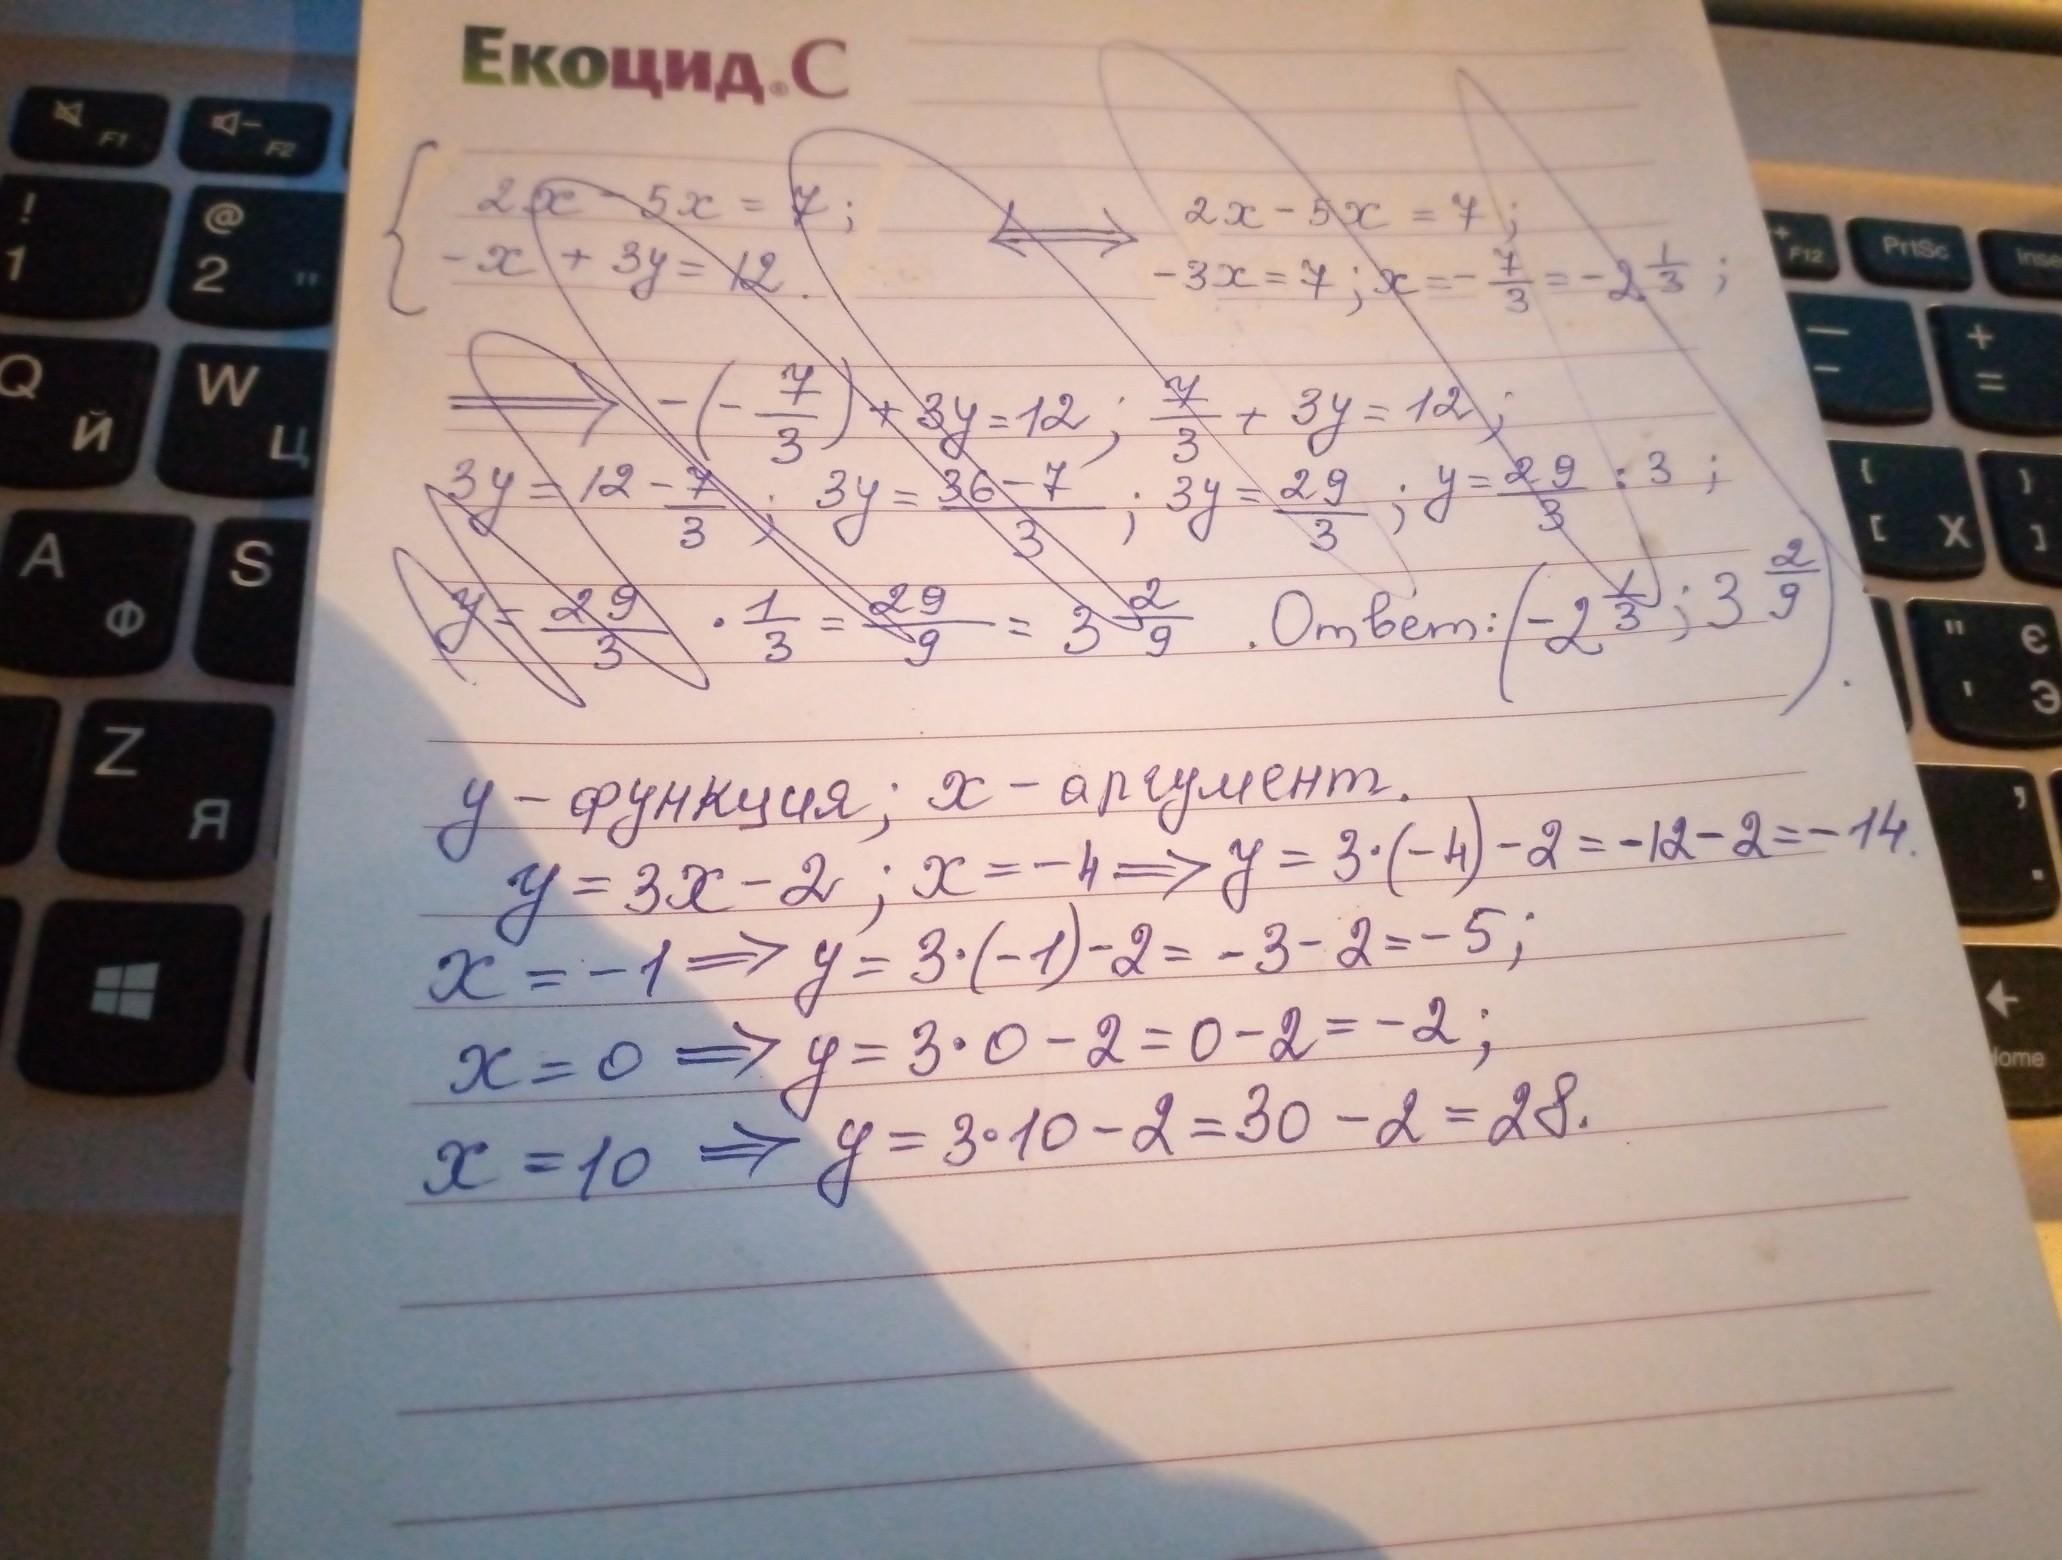 Екоцид®С
{ 2x - 5x = 7; ⟺ 2x - 5x = 7;
-x + 3y = 12. -3x = 7; x = -7/3 = -2 1/3;
⟹ -(-7/3) + 3y = 12; 7/3 + 3y = 12;
3y = 12 - 7/3; 3y = (36-7)/3; 3y = 29/3; y = 29/3 : 3;
y = 29/3 · 1/3 = 29/9 = 3 2/9. Ответ: (-2 1/3; 3 2/9).
y - функция; x - аргумент.
y = 3x - 2; x = -4 ⟹ y = 3·(-4) - 2 = -12 - 2 = -14.
x = -1 ⟹ y = 3·(-1) - 2 = -3 - 2 = -5;
x = 0 ⟹ y = 3·0 - 2 = 0 - 2 = -2;
x = 10 ⟹ y = 3·10 - 2 = 30 - 2 = 28.
F1
F2
F12
PrtSc
Inse
! 1
@ 2 "
Q Й
W Ц
A Ф
S
Z Я
— -
+ =
{ [ Х
} ]
" ' Є Э
Home